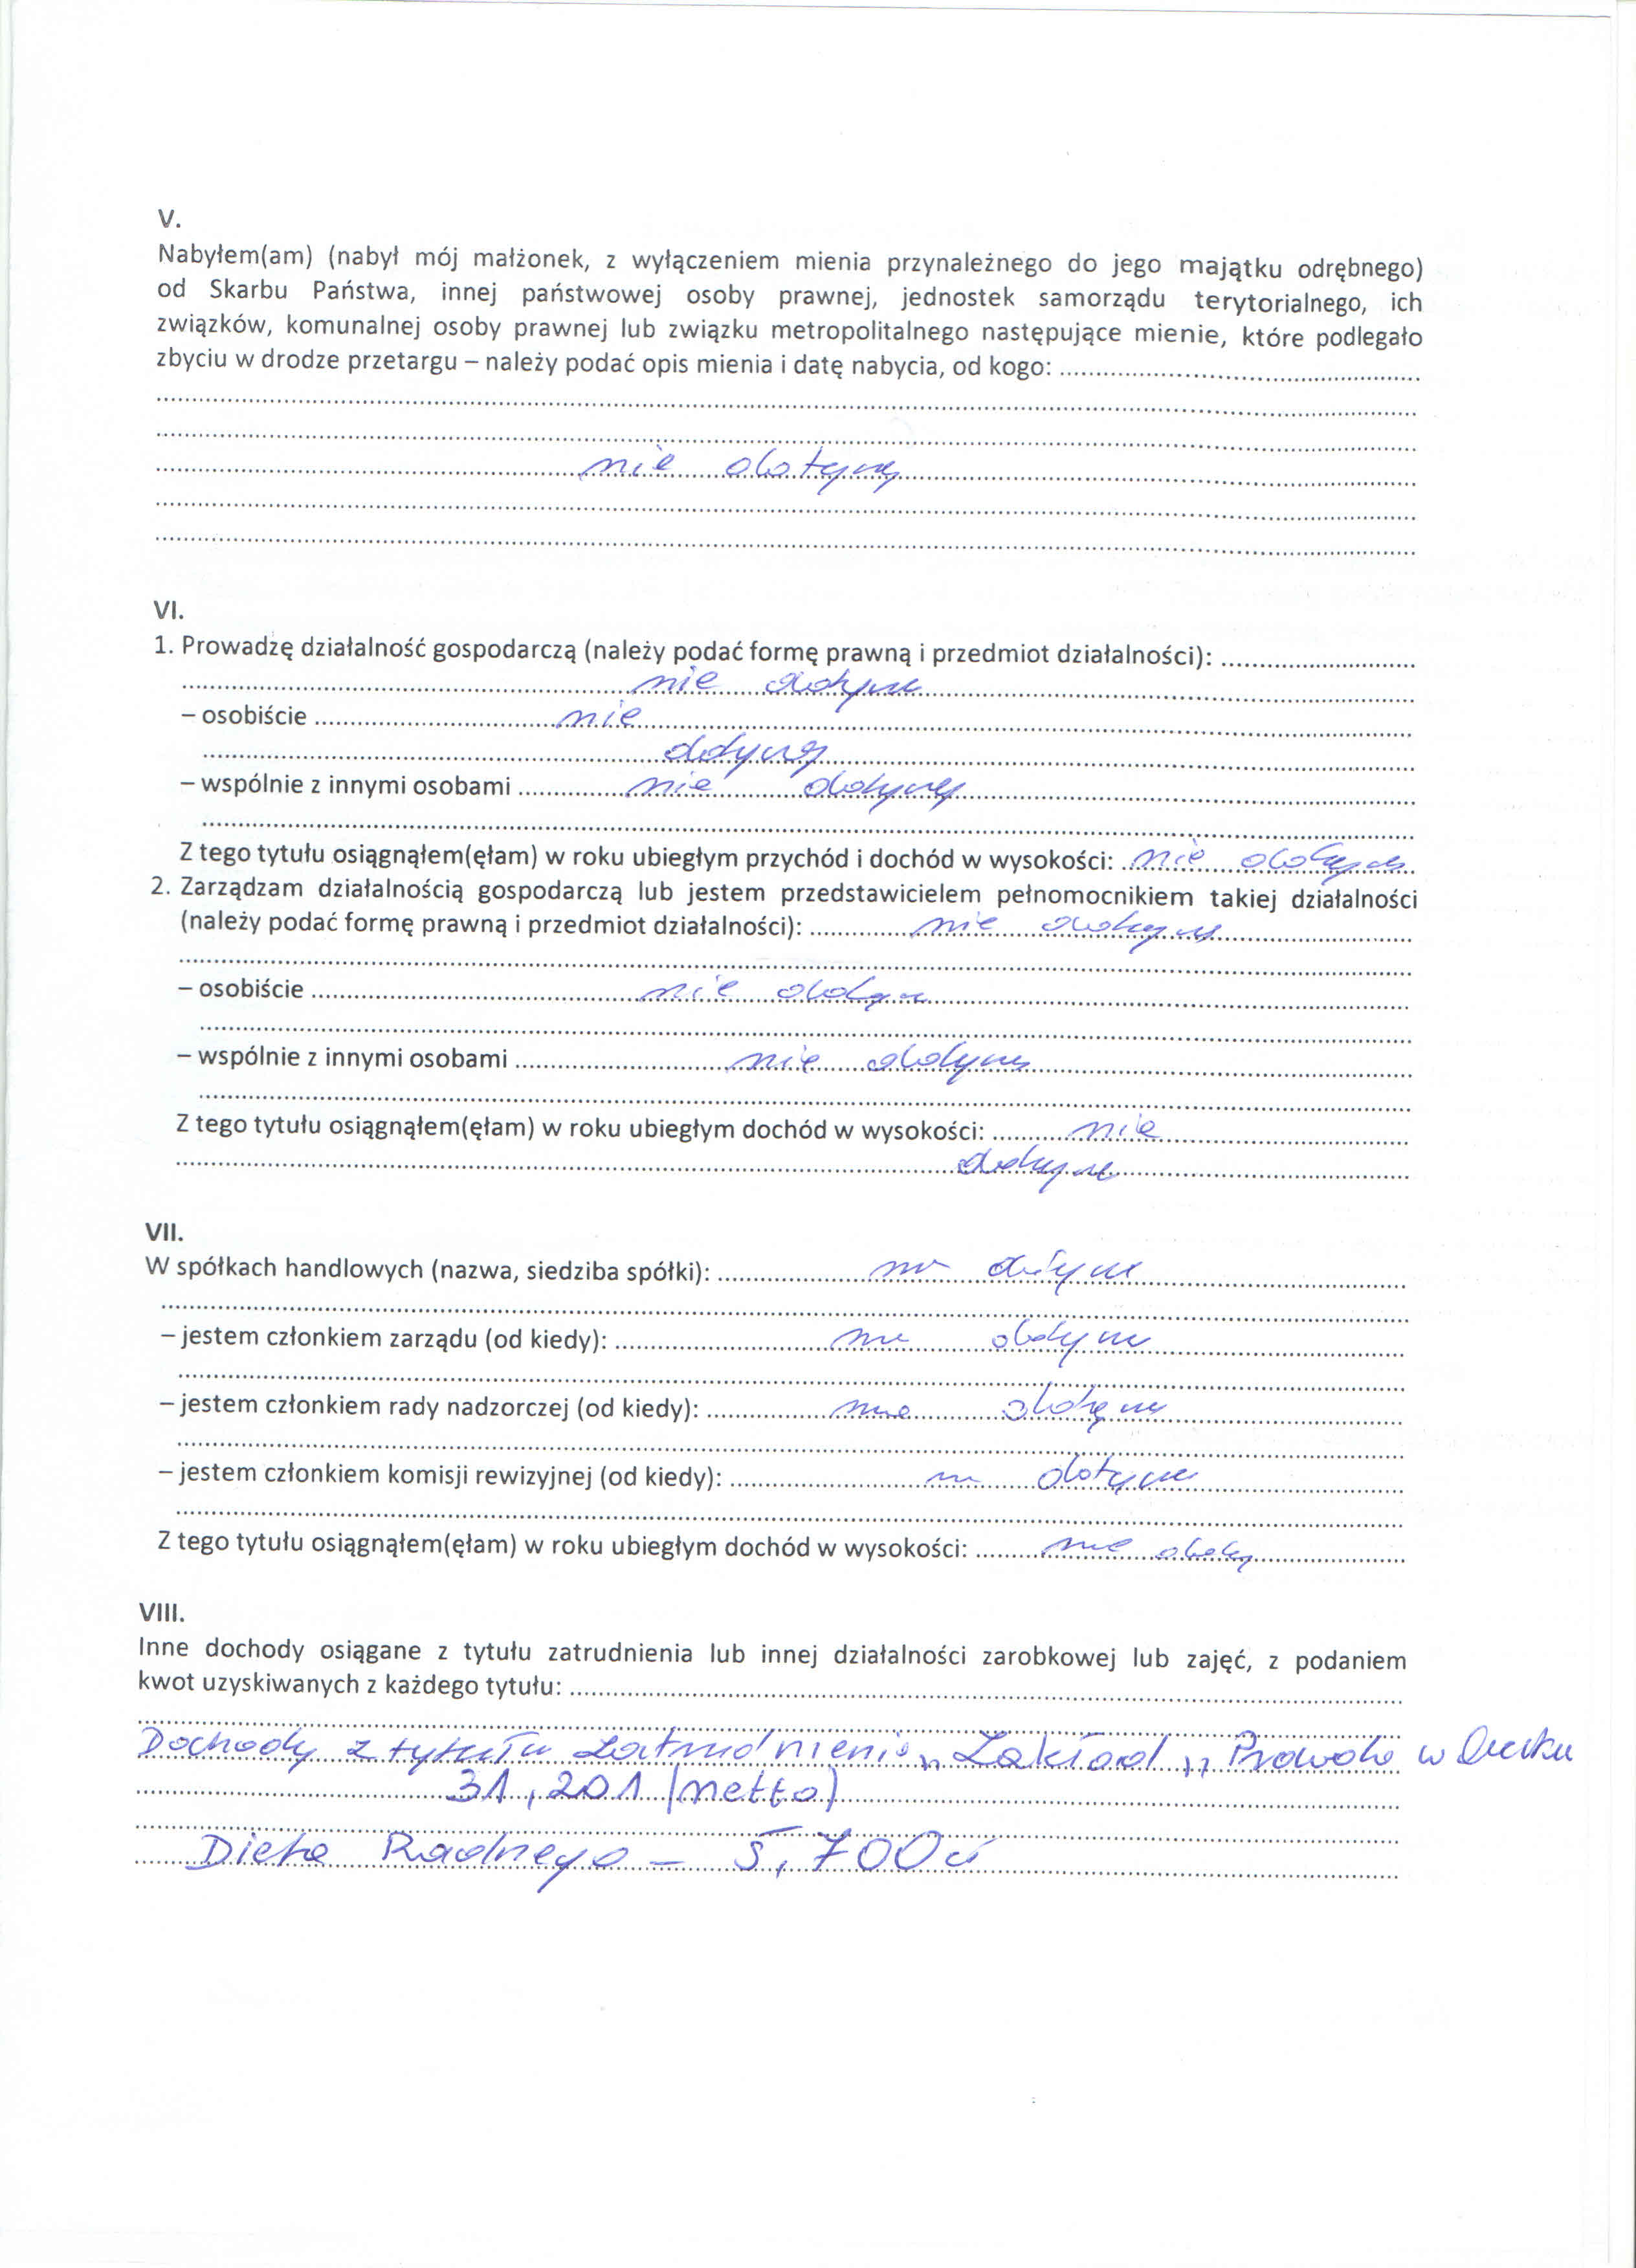 V.
Nabyłem(am) (nabył mój małżonek, z wyłączeniem mienia przynależnego do jego majątku odrębnego)
od Skarbu Państwa, innej państwowej osoby prawnej, jednostek samorządu terytorialnego, ich
związków, komunalnej osoby prawnej lub związku metropolitalnego następujące mienie, które podlegało
zbyciu w drodze przetargu – należy podać opis mienia i datę nabycia, od kogo:
nie dotyczy
VI.
1. Prowadzę działalność gospodarczą (należy podać formę prawną i przedmiot działalności):
nie dotyczy
– osobiście nie
dotyczy
– wspólnie z innymi osobami nie dotyczy
Z tego tytułu osiągnąłem(ęłam) w roku ubiegłym przychód i dochód w wysokości: nie dotyczy
2. Zarządzam działalnością gospodarczą lub jestem przedstawicielem pełnomocnikiem takiej działalności
(należy podać formę prawną i przedmiot działalności): nie dotyczy
– osobiście nie dotyczy
– wspólnie z innymi osobami nie dotyczy
Z tego tytułu osiągnąłem(ęłam) w roku ubiegłym dochód w wysokości: nie
dotyczy
VII.
W spółkach handlowych (nazwa, siedziba spółki): nie dotyczy
– jestem członkiem zarządu (od kiedy): nie dotyczy
– jestem członkiem rady nadzorczej (od kiedy): nie dotyczy
– jestem członkiem komisji rewizyjnej (od kiedy): nie dotyczy
Z tego tytułu osiągnąłem(ęłam) w roku ubiegłym dochód w wysokości: nie
VIII.
Inne dochody osiągane z tytułu zatrudnienia lub innej działalności zarobkowej lub zajęć, z podaniem
kwot uzyskiwanych z każdego tytułu:
Dochody z tytułu zatrudnienia Zakład w
31,201 (netto)
Dieta Radnego – 5,700 zł